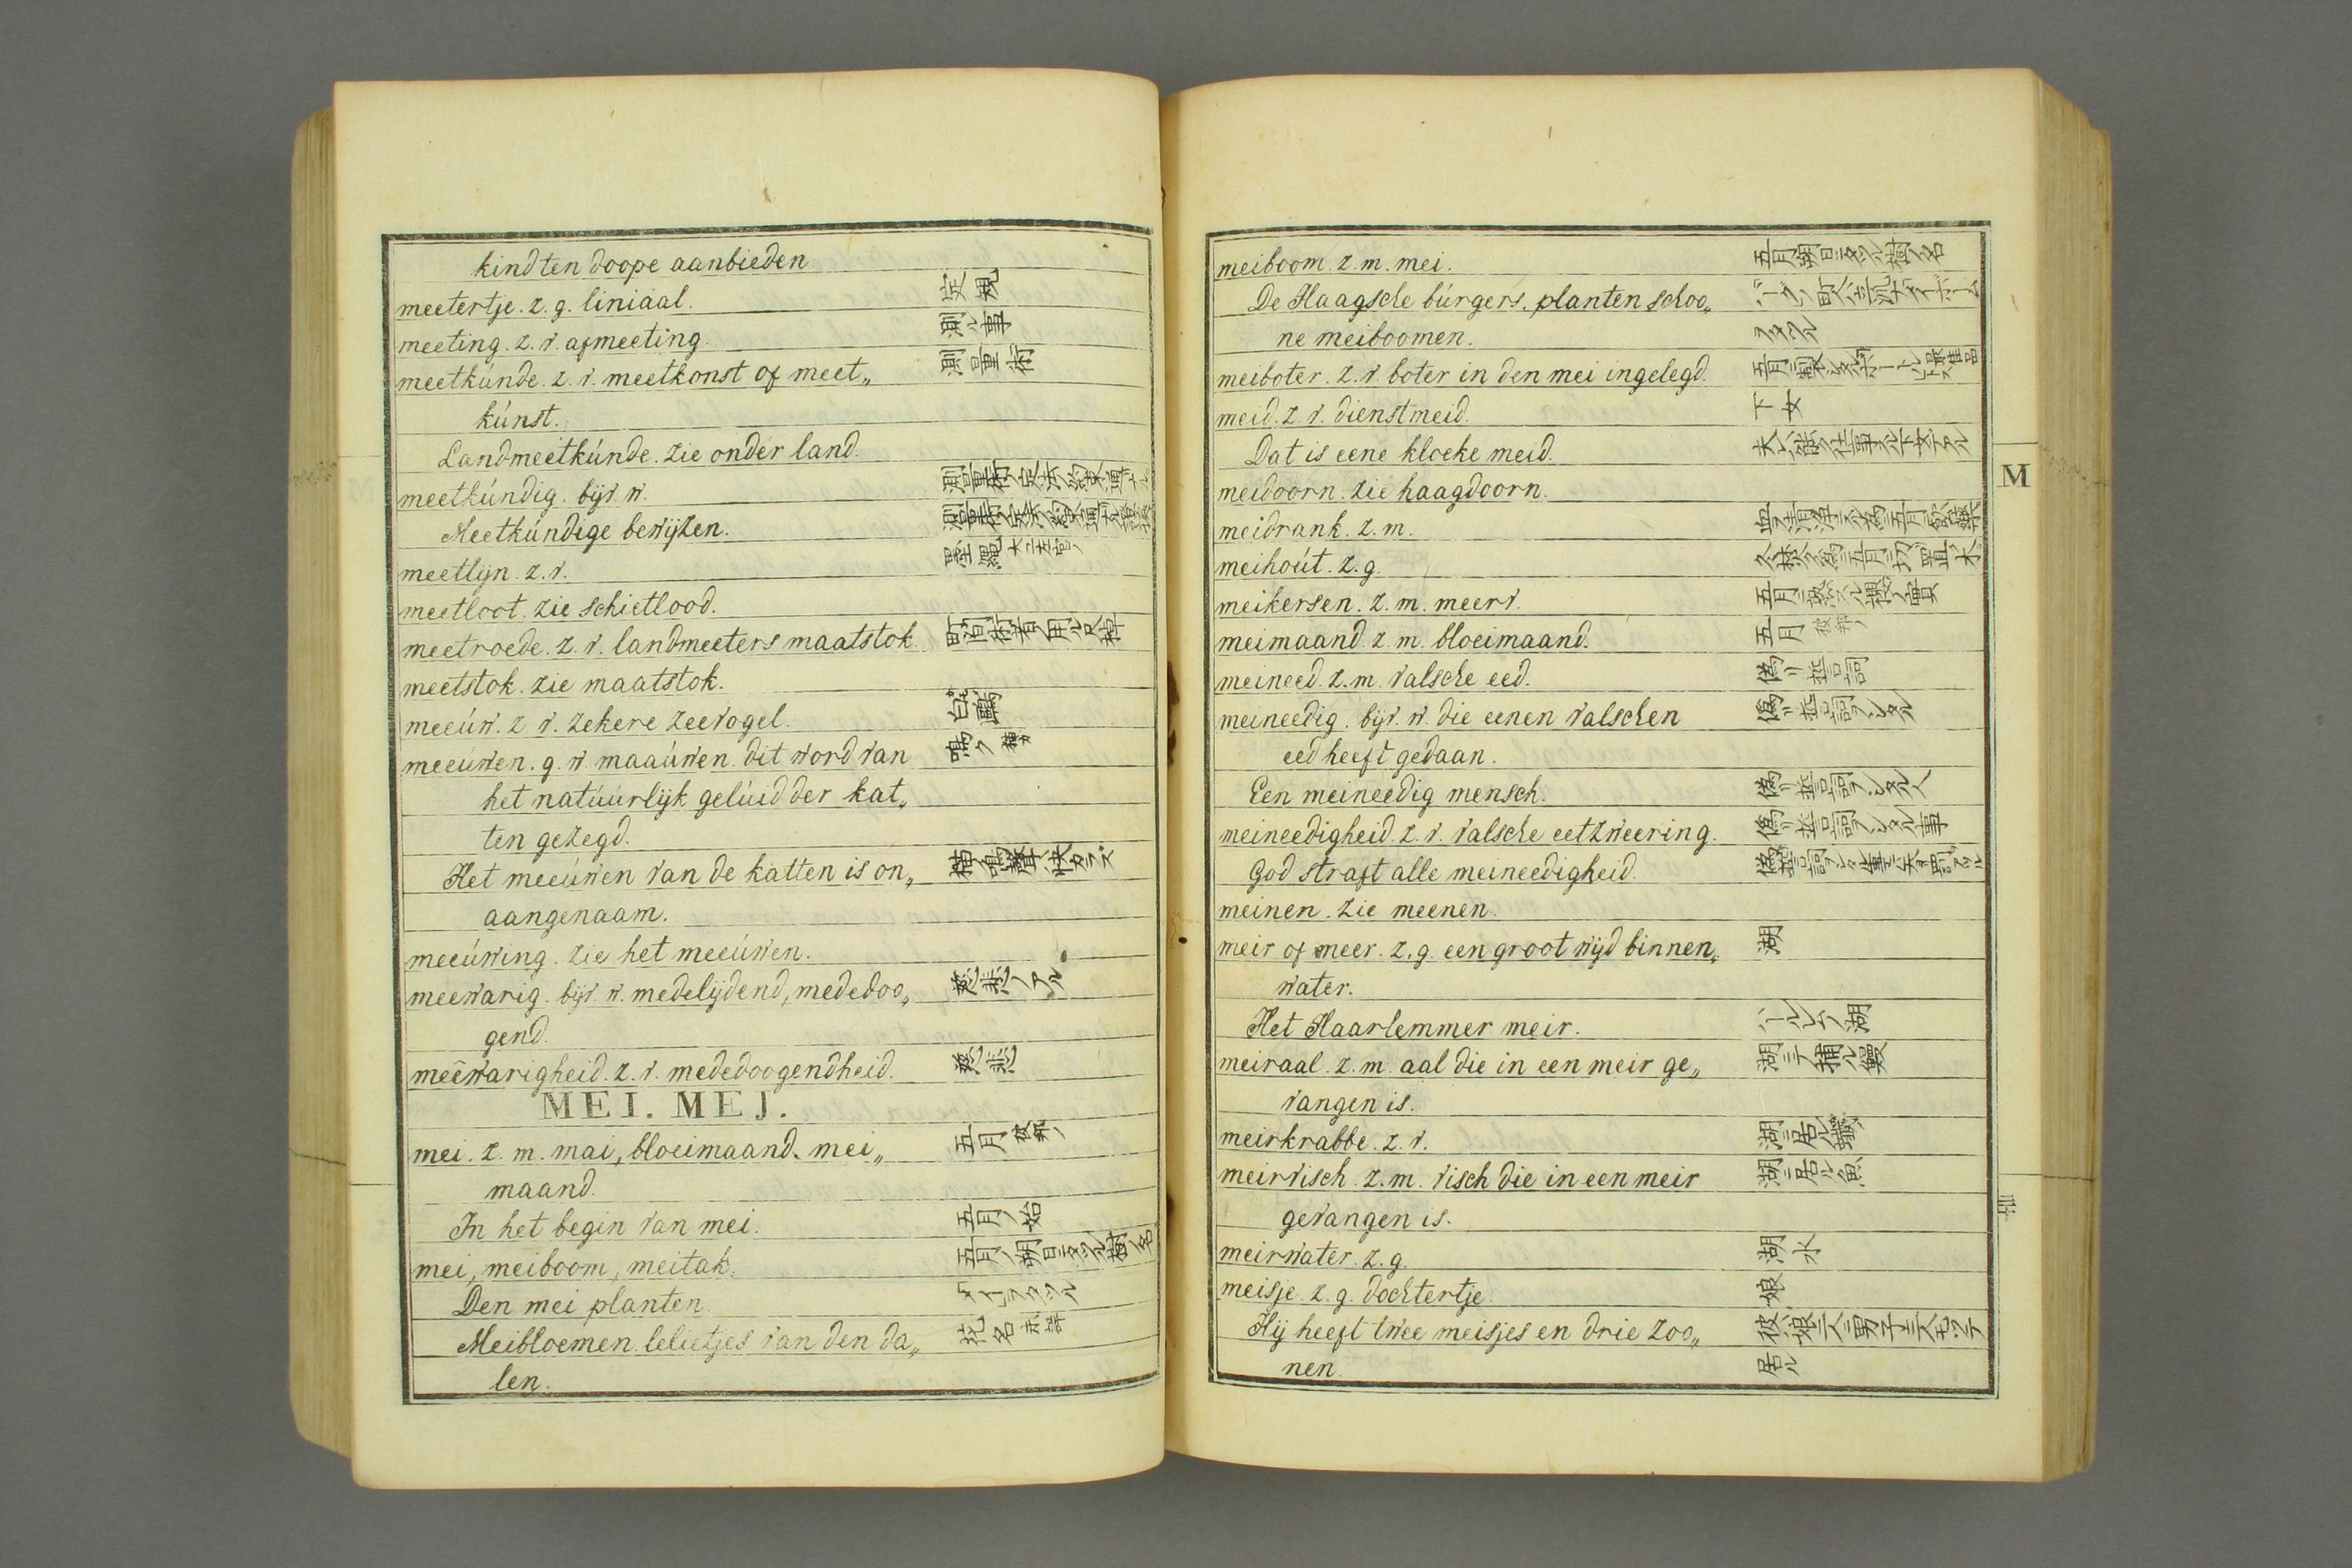 kind ten doope aanbieden
meetertje. z. g. liniaal. 定規
meeting. z. v. afmeeting. 測ル事
meetkúnde. z. v. meetkonst of meet„ 測量術
kúnst.
Landmeetkúnde. zie onder land.
meetkúndig. bijv. w.
Meetkúndige bewijzen.
meetlijn. z. v. 墨縄
meetloot. zie schietlood.
meetroede. z. v. landmeeters maatstok.
meetstok. zie maatstok.
meeúw. z. v. zekere zeevogel. 白鷗
meeúwen. g. w. maaúwen. dit word van 鳴ク
het natúúrlijk gelúid der kat„
ten gezegd.
Het meeúwen van de katten is on„
aangenaam.
meeúwing. zie het meeúwen.
meewarig. bijv. w. medelijdend, mededoo„ 慈悲ノアル
gend.
meêwarigheid. z. v. mededoogendheid. 慈悲
MEI. MEJ.
mei. z. m. mai, bloeimaand. mei„ 五月 彼邦ノ
maand.
In het begin van mei. 五月ノ始
mei, meiboom, meitak. 五月ノ朔日ニタツル樹ノ名
Den mei planten.
Meibloemen. lelietjes van den da„ 花名
len.
meiboom. z. m. mei. 五月朔日ニタツル樹ノ名
De Haagsche búrgers. planten schoo„
ne meiboomen. ヲタツル
meiboter. z. v. boter in den mei ingelegd.
meid. z. v. dienstmeid. 下女
Dat is eene kloeke meid.
meidoorn. zie haagdoorn.
meidrank. z. m.
meihoút. z. g.
meikersen. z. m. meerv. 五月ニ熟スル桜ノ實
meimaand. z. m. bloeimaand. 五月 彼邦ノ
meineed. z. m. valsche eed. 偽リ誓詞
meineedig. bijv. w. die eenen valschen 偽リ誓詞ヲシタル
eed heeft gedaan.
Een meineedig mensch. 偽リ誓詞ヲシタル人
meineedigheid. z. v. valsche eetzweering. 偽リ誓詞ヲシタル事
God straft alle meineedigheid.
meinen. zie meenen.
meir of meer. z. g. een groot wijd binnen„ 湖
water.
Het Haarlemmer meir. ハールレムノ湖
meiraal. z. m. aal die in een meir ge„ 湖ニテ捕ル鰻
vangen is.
meirkrabbe. z. v. 湖ニ居ル蟹
meirvisch. z. m. visch die in een meir 湖ニ居ル魚
gevangen is.
meirwater. z. g. 湖水
meisje. z. g. dochtertje. 娘
Hij heeft twee meisjes en drie zoo„ 彼ハ娘二人男子三人モツテ
nen. 居ル
M